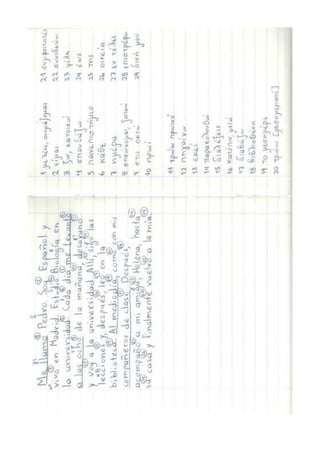 Me llamo Pedro. Soy Español y
vivo en Madrid. Estudio Biología en
la universidad. Cada día me levanto
a las ocho de la mañana, desayuno
y voy a la universidad. Allí, sigo las
lecciones y después, leo en la
biblioteca. Al mediodía, como con mis
compañeros de clase. Después,
acompaño a mi amiga, Helena, hasta
su casa y finalmente vuelvo a la mía.
2 είμαι
3 ζω, κατοικώ
4 σπουδάζω
5 πανεπιστήμιο
6 κάθε
7 ημέρα
8 σηκώνομαι, ξυπνώ
9 στις οκτώ
10 πρωί
11 τρώω πρωινό
12 πηγαίνω
13 εκεί
14 παρακολουθώ
15 διαλέξεις
16 κατόπιν, μετά
17 διαβάζω
18 βιβλιοθήκη
19 το μεσημέρι
20 τρώω (μεσημεριανό)
21 συμφοιτητές
22 συνοδεύω
23 φίλη
24 έως
25 της
26 οικεία
27 εν τέλει
28 επιστρέφω
29 δική μου